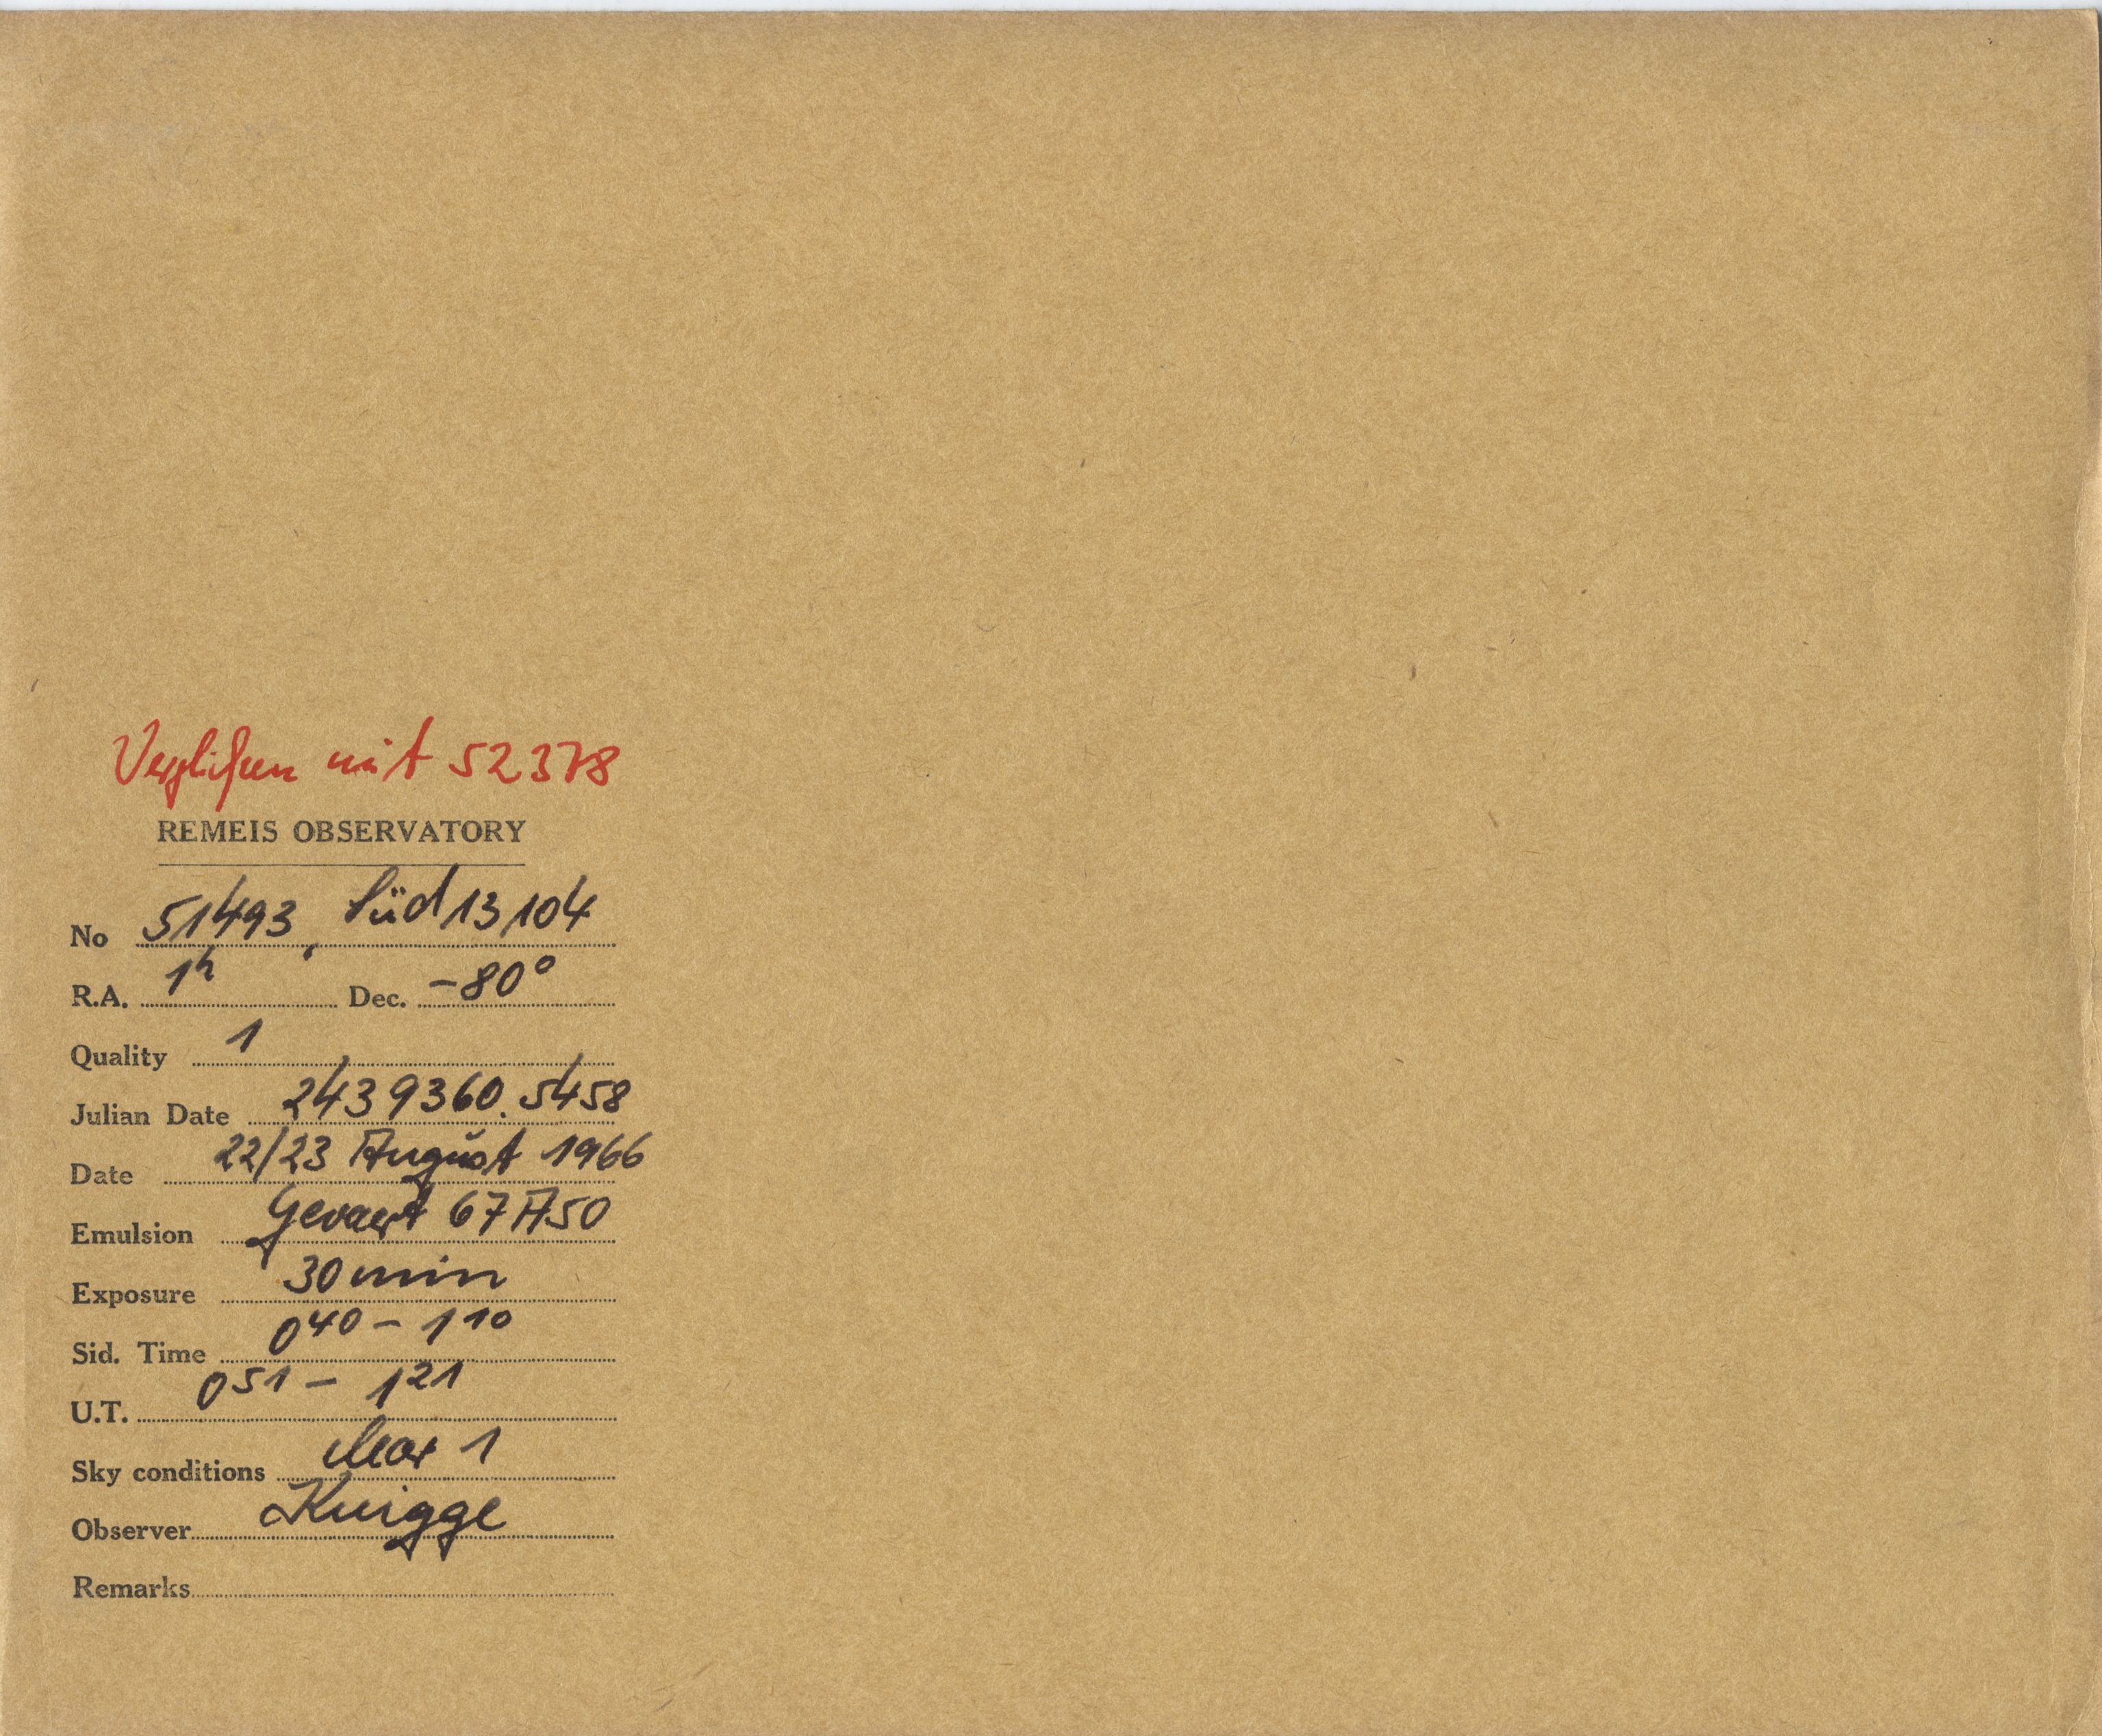 Verglichen mit 52378
REMEIS OBSERVATORY
No 51493, Süd 13104
R.A. 1h Dec. -80°
Quality 1
Julian Date 2439360.5458
Date 22/23 August 1966
Emulsion Gevaert 67A50
Exposure 30 min
Sid. Time 0 40 - 1 10
U.T. 0 51 - 1 21
Sky conditions clear 1
Observer Knigge
Remarks